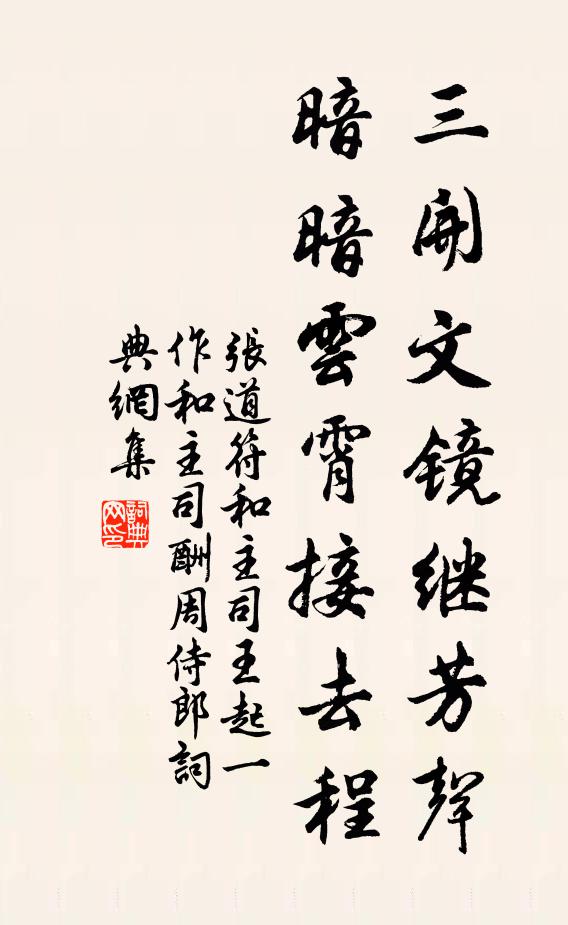 三開文镜继芳聲
暗暗雲霄接去程
張道符和主司王起一
作和主司酬周侍郎詞
典網集
詞典网印